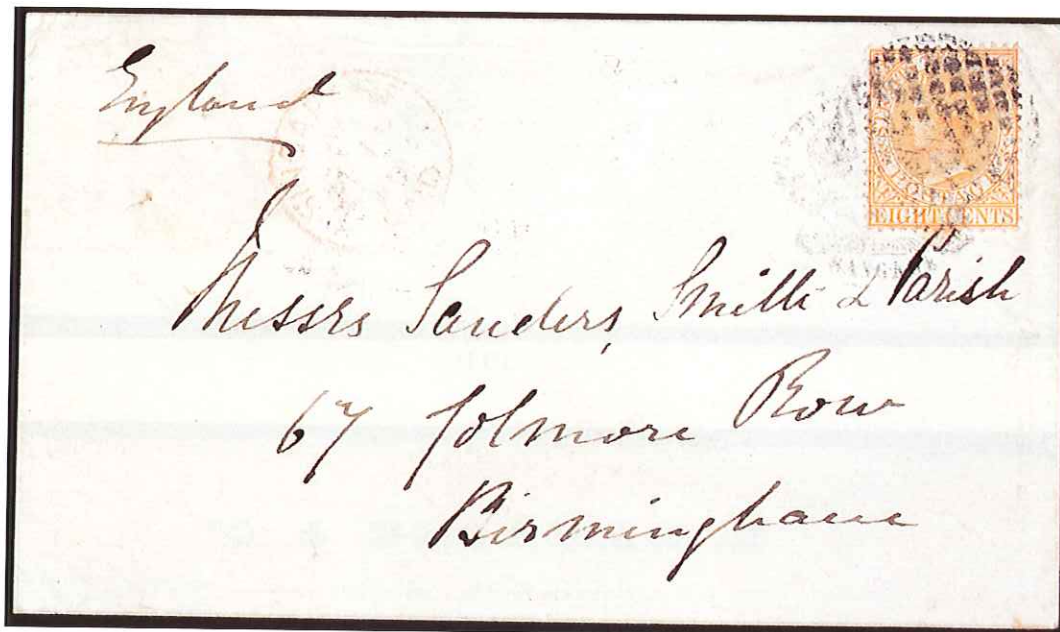 England
EIGHT CENTS
Messrs Sanders, Smith & Parish
67 Colmore Row
Birmingham